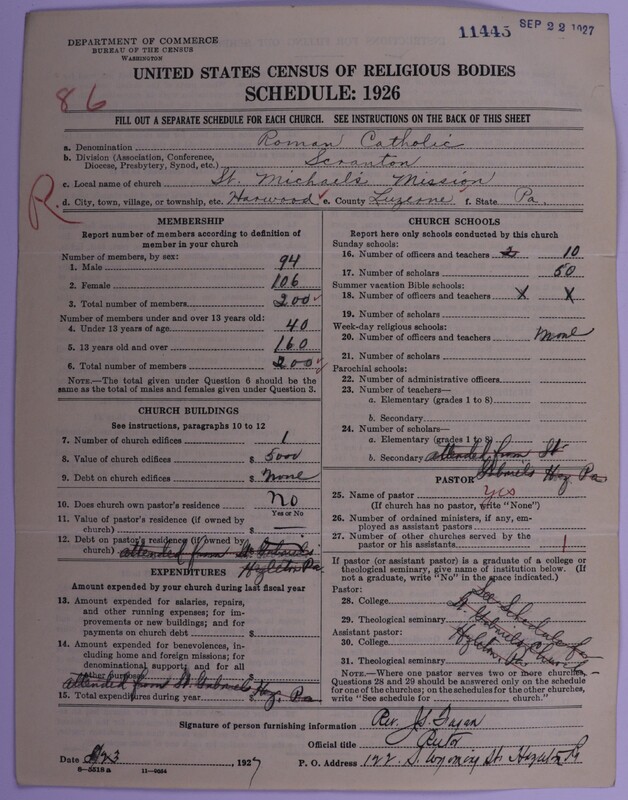 11443 SEP 22 1927
DEPARTMENT OF COMMERCE
BUREAU OF THE CENSUS
WASHINGTON
UNITED STATES CENSUS OF RELIGIOUS BODIES
SCHEDULE: 1926
86
FILL OUT A SEPARATE SCHEDULE FOR EACH CHURCH. SEE INSTRUCTIONS ON THE BACK OF THIS SHEET
a. Denomination Roman Catholic
b. Division (Association, Conference, Diocese, Presbytery, Synod, etc.) Scranton
c. Local name of church St. Michael's Mission
R.
d. City, town, village, or township, etc. Harwood e. County Luzerne f. State Pa.
MEMBERSHIP
Report number of members according to definition of
member in your church
Number of members, by sex:
1. Male 94
2. Female 106
3. Total number of members 200
Number of members under and over 13 years old:
4. Under 13 years of age 40
5. 13 years old and over 160
6. Total number of members 200
NOTE.—The total given under Question 6 should be
same as the total of males and females given under Question 3.
CHURCH BUILDINGS
See instructions, paragraphs 10 to 12
7. Number of church edifices 1
8. Value of church edifices $ 5000
9. Debt on church edifices $ None
10. Does church own pastor's residence? No
Yes or No
11. Value of pastor's residence (if owned by
church) $ —
12. Debt on pastor's residence (if owned by
church) attended from St. Gabriels
Hazleton Pa
EXPENDITURES
Amount expended by your church during last fiscal year
13. Amount expended for salaries, repairs,
and other running expenses; for im-
provements or new buildings; and for
payments on church debt $
14. Amount expended for benevolences,
including home and foreign missions; for
denominational support; and for all
other purposes
attended from St. Gabriels Haz. Pa
15. Total expenditures during year $
CHURCH SCHOOLS
Report here only schools conducted by this church
Sunday schools:
16. Number of officers and teachers 2 10
17. Number of scholars 50
Summer vacation Bible schools:
18. Number of officers and teachers X X
19. Number of scholars
Week-day religious schools:
20. Number of officers and teachers None
21. Number of scholars
Parochial schools:
22. Number of administrative officers
23. Number of teachers—
a. Elementary (grades 1 to 8)
b. Secondary
24. Number of scholars—
a. Elementary (grades 1 to 8)
b. Secondary attended from St
Gabriels Haz Pa
PASTOR
25. Name of pastor yes
(If church has no pastor, write "None")
26. Number of ordained ministers, if any, em-
ployed as assistant pastors
27. Number of other churches served by the
pastor or his assistants 1
If pastor (or assistant pastor) is a graduate of a college or
theological seminary, give name of institution below. (If
not a graduate, write "No" in the space indicated.)
Pastor:
28. College See Schedule for
29. Theological seminary St. Gabriels Church
Assistant pastor:
30. College Hazleton, Pa
31. Theological seminary
NOTE.—Where one pastor serves two or more churches,
Questions 28 and 29 should be answered only on the schedule
for one of the churches; on the schedules for the other churches,
write "See schedule for church."
Signature of person furnishing information Rev. J.S. Fagan
Official title Rector
Date 23 1927 P. O. Address 122 S. Wyoming St. Hazleton Pa
8—5518a 11—9034